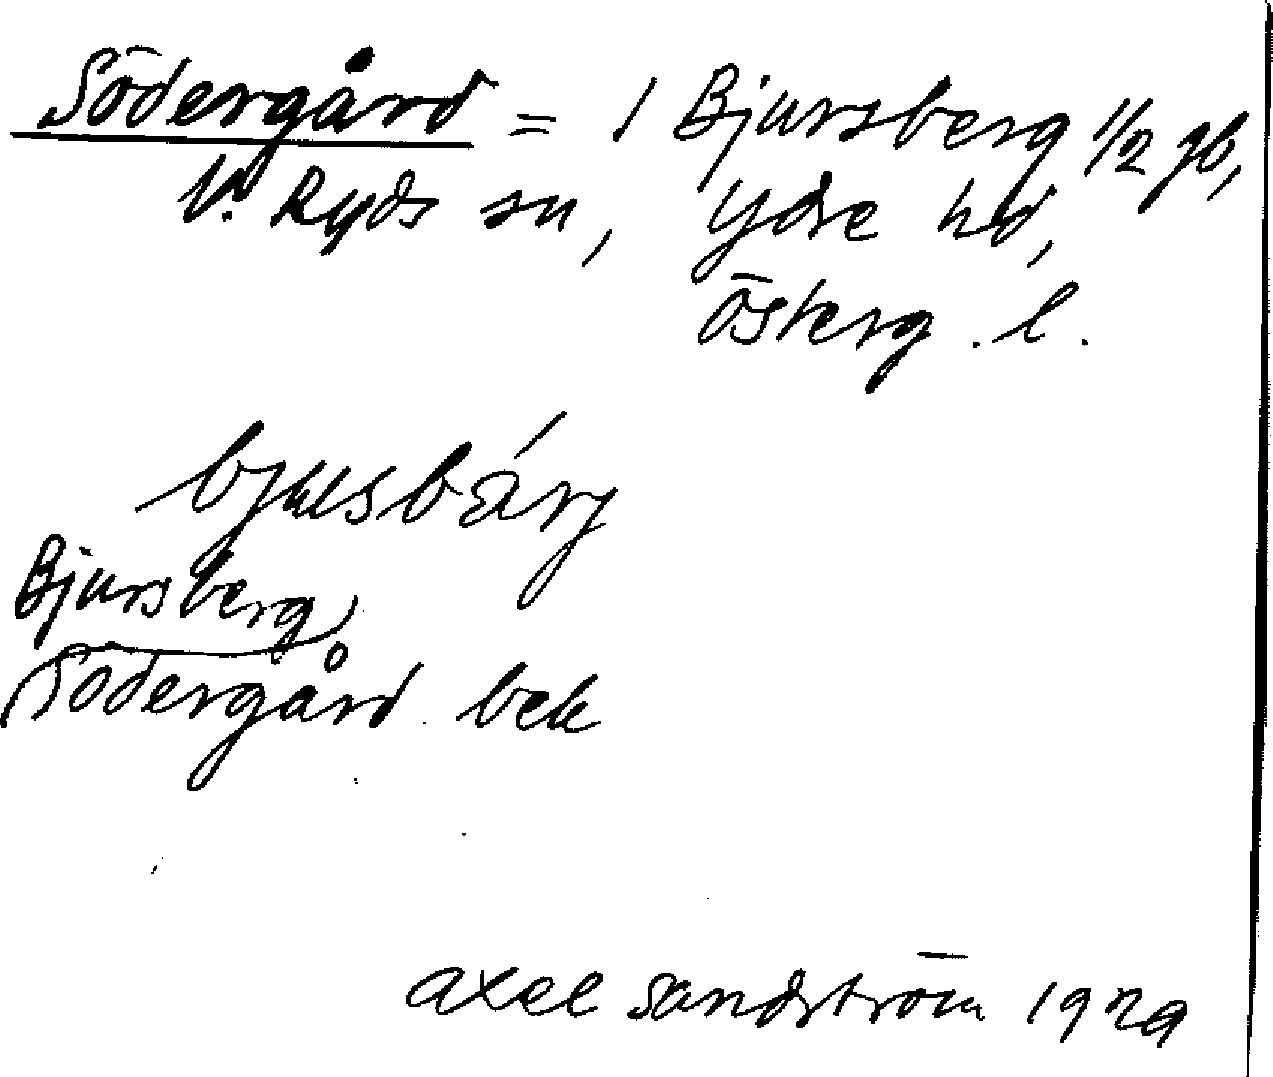 Södergård = 1 Bjursberg 1/2 gb,
V. Ryds sn, Ydre hd,
Österg. l.
bjusbärj
Bjursberg
Södergård bek
axel sandström 1929